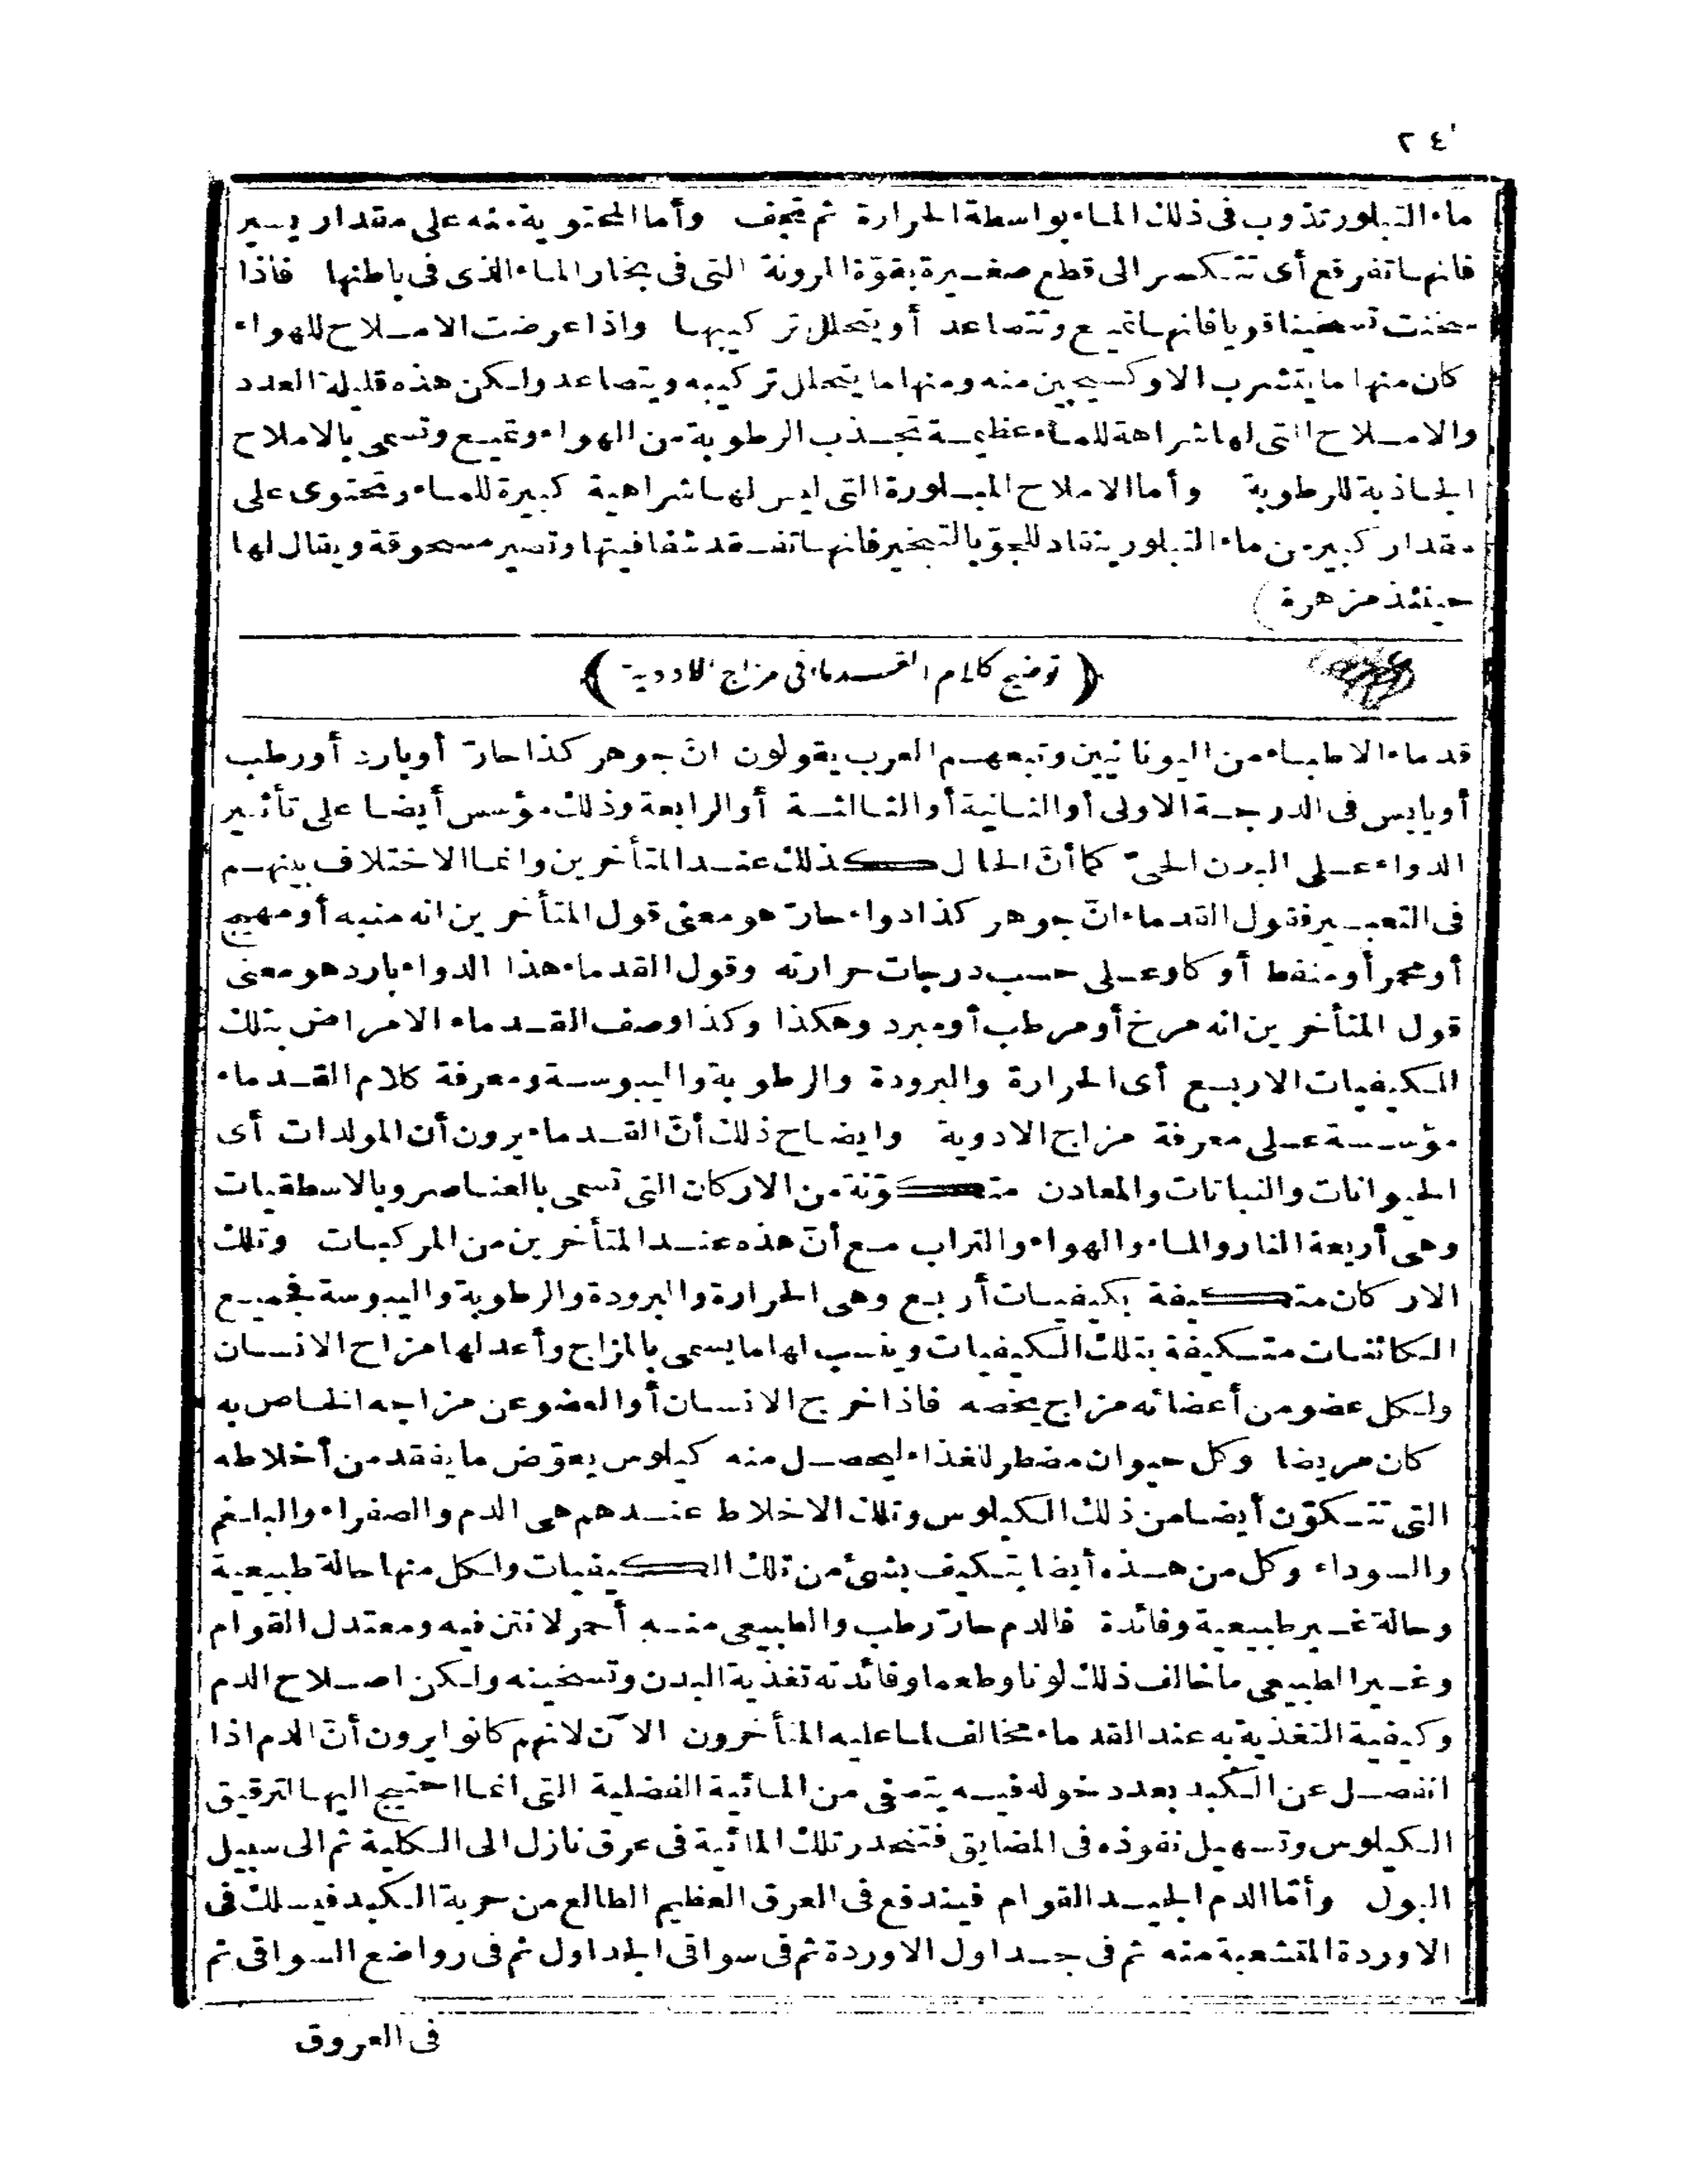 ٢٤
ماء التبلور تذوب فى ذلك الماء بواسطة الحرارة ثم تجف وأما المحتوية منه على مقدار يسير
فانها تفرقع أى تتكسر الى قطع صغيرة بقوّة المرونة التى فى بخار الماء الذى فى باطنها فاذا
سخنت تسخينا قويا فانها تميع وتتصاعد أو يتحلل تركيبها واذا عرضت الاملاح للهواء
كان منها ما يتشرب الاوكسيجين منه ومنها ما يتحلل تركيبه ويتصاعد ولكن هذه قليلة العدد
والاملاح التى لها شراهة للماء عظيمة تجذب الرطوبة من الهواء وتميع وتسمى بالاملاح
الجاذبة للرطوبة وأما الاملاح المبلورة التى ليس لها شراهية كبيرة للماء وتحتوى على
مقدار كبير من ماء التبلور ينقاد للجوّ بالتبخير فانها تفقد شفافيتها وتصير مسحوقة ويقال لها
حينئذ مزهرة)
(توضيح كلام القدماء فى مزاج الادوية)
قدماء الاطباء من اليونانيين وتبعهم العرب يقولون انّ جوهر كذا حارّ أو بارد أو رطب
أو يابس فى الدرجة الاولى أو الثانية أو الثالثة أو الرابعة وذلك مؤسس أيضا على تأثير
الدواء على البدن الحىّ كما أنّ الحال كذلك عند المتأخرين وانما الاختلاف بينهم
فى التعبير فقول القدماء انّ جوهر كذا دواء حارّ هو معنى قول المتأخرين انه منبه أو مهيج
أو محمر أو منفط أو كاو على حسب درجات حرارته وقول القدماء هذا الدواء بارد هو معنى
قول المتأخرين انه مرخ أو مرطب أو مبرد وهكذا وكذا وصف القدماء الامراض بتلك
الكيفيات الاربع أى الحرارة والبرودة والرطوبة واليبوسة ومعرفة كلام القدماء
مؤسسة على معرفة مزاج الادوية وايضاح ذلك أنّ القدماء يرون أن المولدات أى
الحيوانات والنباتات والمعادن متكوّنة من الاركان التى تسمى بالعناصر وبالاسطقيات
وهى أربعة النار والماء والهواء والتراب مع أنّ هذه عند المتأخرين من المركبات وتلك
الاركان متكيفة بكيفيات أربع وهى الحرارة والبرودة والرطوبة واليبوسة فجميع
الكائنات متكيفة بتلك الكيفيات وينسب لها ما يسمى بالمزاج وأعدلها مزاج الانسان
ولكل عضو من أعضائه مزاج يخصه فاذا خرج الانسان أو العضو عن مزاجه الخاص به
كان مريضا وكل حيوان مضطر للغذاء ليحصل منه كيلوس يعوّض ما يفقد من أخلاطه
التى تتكوّن أيضا من ذلك الكيلوس وتلك الاخلاط عندهم هى الدم والصفراء والبلغم
والسوداء وكل من هذه أيضا يتكيف بشئ من تلك الكيفيات ولكل منها حالة طبيعية
وحالة غير طبيعية وفائدة فالدم حارّ رطب والطبيعى منه أحمر لا نتن فيه ومعتدل القوام
وغير الطبيعى ما خالف ذلك لونا وطعما وفائدته تغذية البدن وتسخينه ولكن اصلاح الدم
وكيفية التغذية به عند القدماء مخالف لما عليه المتأخرون الآن لانهم كانوا يرون أنّ الدم اذا
انفصل عن الكبد بعد دخوله فيه يتصفى من المائية الفضلية التى انما احتيج اليها لترقيق
الكيلوس وتسهيل نفوذه فى المضايق فتنحدر تلك المائية فى عرق نازل الى الكلية ثم الى سبيل
البول وأمّا الدم الجيد القوام فيندفع فى العرق العظيم الطالع من حربة الكبد فيسلك فى
الاوردة المتشعبة منه ثم فى جداول الاوردة ثم فى سواقى الجداول ثم فى رواضع السواقى ثم
فى العروق